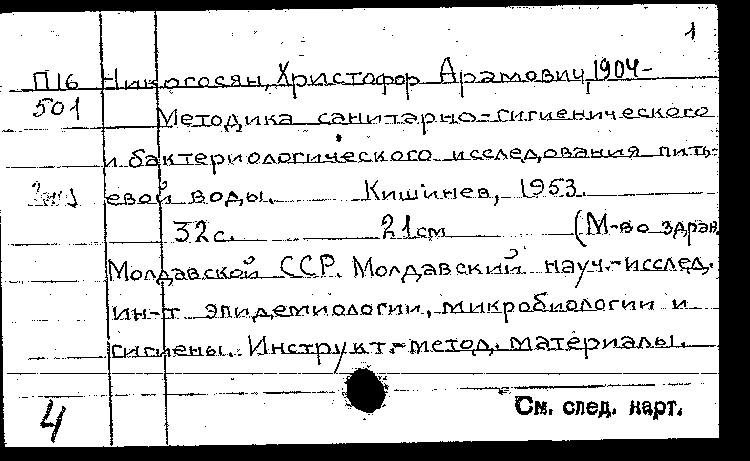 1
П16 Никогосян, Христофор Арамович, 1904-
501 Методика санитарно-гигиенического
и бактериологического исследования пить-
евой воды. Кишинев, 1953.
32с. 21см (М-во здрав.
Молдавской ССР. Молдавский науч.-исслед.
ин-т эпидемиологии, микробиологии и
гигиены. Инструкт.-метод. материалы.
4 См. след. карт.